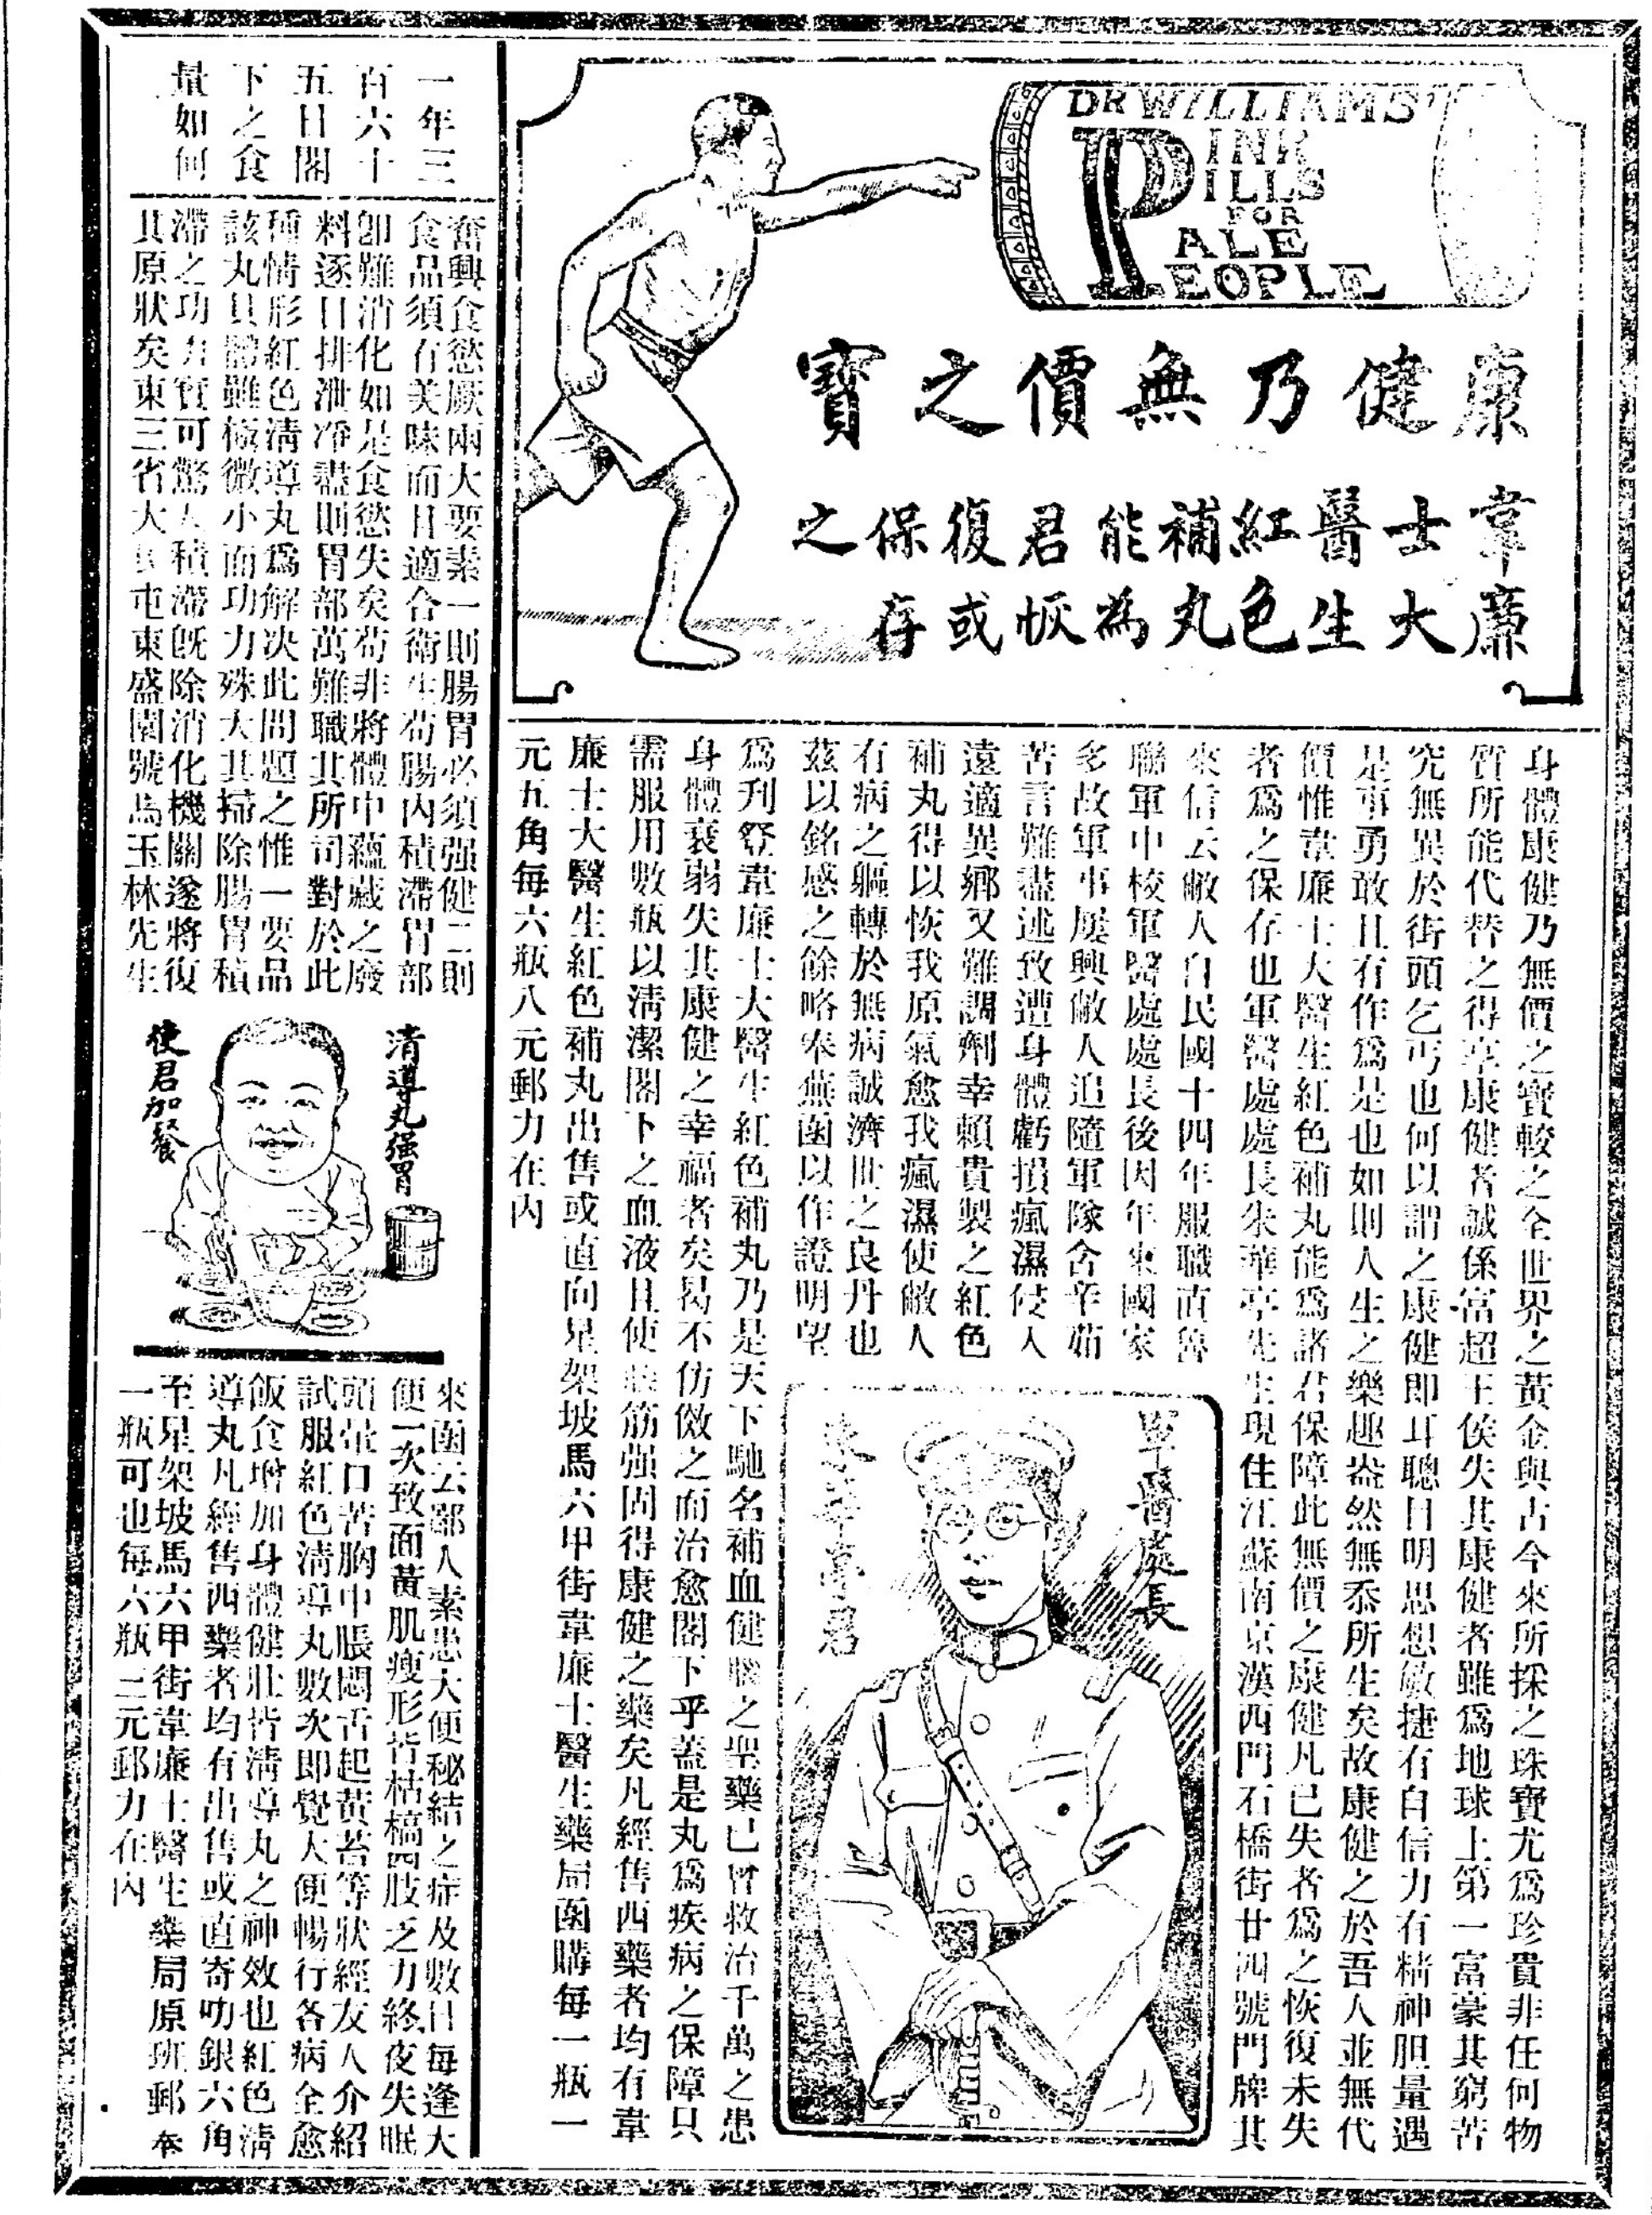 DR WILLIAMS'
PINK
PILLS
FOR
PALE
PEOPLE
康健乃無價之寶
韋廉士大醫生紅色補丸能為君恢復或保存之
身體康健乃無價之寶較之全世界之黃金與古今來所採之珠寶尤爲珍貴非任何物
質所能代替之得享康健者誠係富超王侯失其康健者雖爲地球上第一富豪其窮苦
究無異於街頭乞丐也何以謂之康健即耳聰目明思想敏捷有自信力有精神胆量遇
是事勇敢且有作爲是也如則人生之樂趣盎然無忝所生矣故康健之於吾人並無代
價惟韋廉士大醫生紅色補丸能爲諸君保障此無價之康健凡已失者爲之恢復未失
者爲之保存也軍醫處處長朱華亭先生現住江蘇南京漢西門石橋街廿四號門牌其
來信云敝人自民國十四年服職直魯
聯軍中校軍醫處處長後因年來國家
多故軍事屢興敝人追隨軍隊含辛茹
苦言難盡述致遭身體虧損瘋濕侵人
遠適異鄉又難調劑幸賴貴製之紅色
補丸得以恢我原氣愈我瘋濕使敝人
有病之軀轉於無病誠濟世之良丹也
茲以銘感之餘略奉蕪函以作證明望
軍醫處長
朱華亭君
爲刋登韋廉士大醫生紅色補丸乃是天下馳名補血健腦之聖藥已曾救治千萬之患
身體衰弱失其康健之幸福者矣曷不仿傚之而治愈閣下乎蓋是丸爲疾病之保障只
需服用數瓶以淸潔閣下之血液且使腦筋强固得康健之藥矣凡經售西藥者均有韋
廉士大醫生紅色補丸出售或直向星架坡馬六甲街韋廉士醫生藥局函購每一瓶一
元五角每六瓶八元郵力在內
一年三
百六十
五日閣
下之食
量如何
奮興食慾厥兩大要素一則腸胃必須强健二則
食品須有美味而且適合衞生苟腸內積滯胃部
卽難消化如是食慾失矣苟非將體中蘊藏之廢
料逐日排泄凈盡則胃部萬難職其所司對於此
種情形紅色淸導丸爲解决此問題之惟一要品
該丸具體雖極微小而功力殊大其掃除腸胃積
滯之功力實可驚人積滯旣除消化機關遂將復
其原狀矣東三省大屯東盛園號馬玉林先生
清導丸强胃
使君加餐
來函云鄙人素患大便秘結之症及數日每逢大
便一次致面黃肌瘦形皆枯槁四肢乏力終夜失眠
頭暈口苦胸中脹悶舌起黃苔等狀經友人介紹
試服紅色淸導丸數次即覺大便暢行各病全愈
飯食增加身體健壯皆淸導丸之神效也紅色淸
導丸凡經售西藥者均有出售或直寄叻銀六角
至星架坡馬六甲街韋廉士醫生藥局原班郵奉
一瓶可也每六瓶二元郵力在內